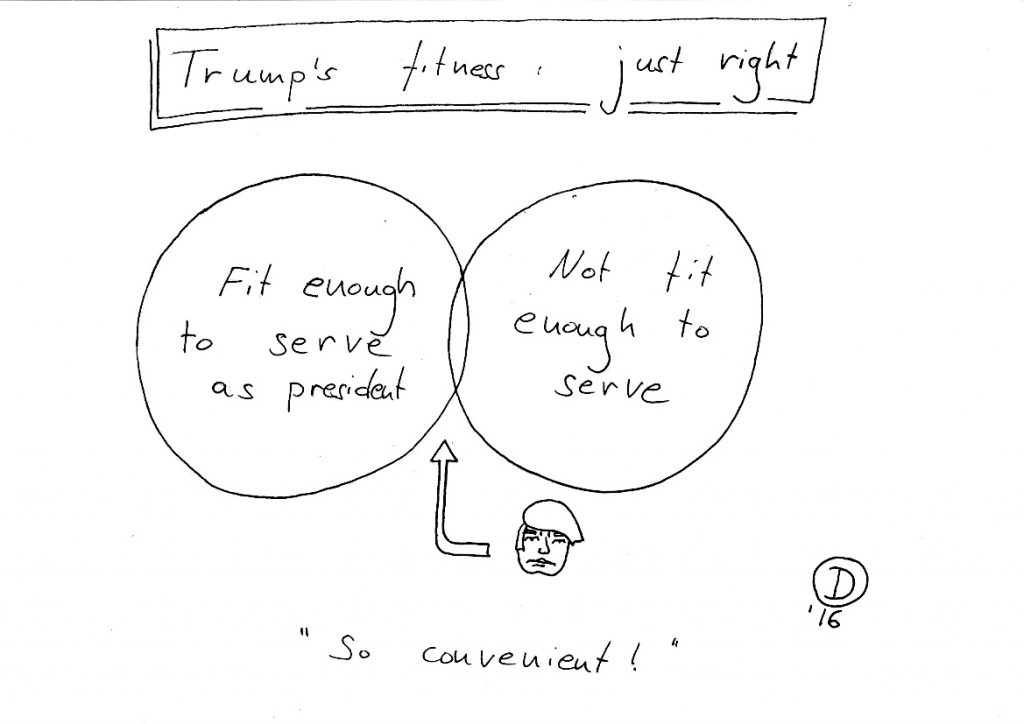 Trump's fitness: just right
Fit enough
to serve
as president
Not fit
enough to
serve
D
'16
"So convenient!"